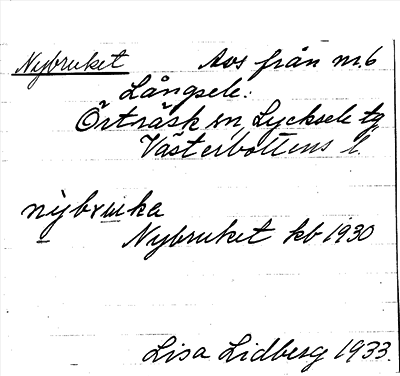 Nybruket Avs från nr. 6
Långsele:
Örträsk sn, Lycksele tg
Västerbottens l.
nỳbruka
Nybruket kb 1930
Lisa Lidberg 1933.